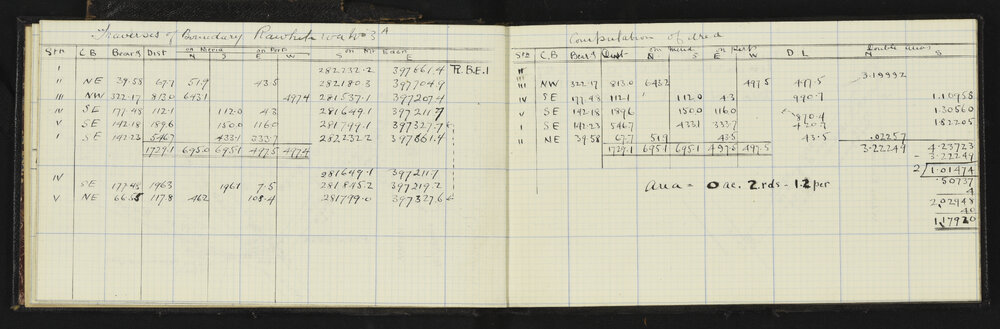 Traverses of Boundary Rawhiti No 3A
Stn C.B Bearg Dist on Merid on Perp on Mt Eden
N S E W S E
I 282232.2 397661.4 Pt. B.E.1
II NE 39.58 67.7 51.9 43.5 282180.3 397704.9
III NW 322.17 813.0 643.1 497.4 281537.1 397207.4
IV SE 177.48 112.1 112.0 4.3 281649.1 397211.7
V SE 142.18 189.6 150.0 116.0 281799.1 397327.7
I SE 142.23 546.7 433.1 333.7 282232.2 397661.4
1729.1 695.0 695.1 497.5 497.4
IV 281649.1 397211.7
SE 177.48 196.3 196.1 7.5 281845.2 397219.2
V NE 66.55 117.8 46.2 108.4 281799.0 397327.6
Computation of Area
Stn C.B Bearg Dist on Merid on Perp D L Double areas
N S E W N S
II
III NW 322.17 813.0 643.2 497.5 497.5 3.19992
IV SE 177.48 112.1 112.0 4.3 990.7 1.10958
V SE 142.18 189.6 150.0 116.0 870.4 1.30560
I SE 142.23 546.7 433.1 333.7 420.7 1.82205
II NE 39.58 67.7 51.9 43.5 43.5 .02257
1729.1 695.1 695.1 497.5 497.5 3.22249 4.23723
- 3.22249
Area = 0 ac. 2 rds - 1.2 per
2) 1.01474
.50737
4
2,02948
40
1,17920